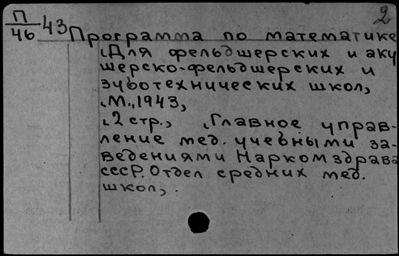 П/46 43 2
Программа по математике
(Для фельдшерских и аку
шерско-фельдшерских и
зуботехнических школ,
М., 1943,
12 стр., Главное управ-
ление мед. учебными за-
ведениями Наркомздрава
СССР. Отдел средних мед.
школ,.